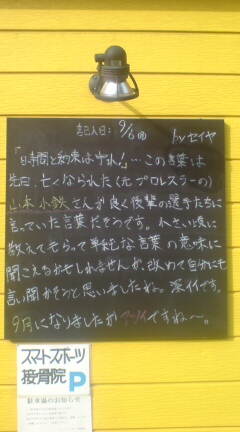 記入日: 9/6(月) by セイヤ
『時間と約束は守れ!』…この言葉は
先日、亡くなられた(元プロレスラーの)
山本小鉄さんが良く後輩の選手たちに
言っていた言葉だそうです。小さい頃に
教えてもらって単純な言葉の意味に
聞こえるかもしれませんが、改めて自分にも
言い聞かそうと思いましたね。深イイです。
9月になりましたがアツイですね〜。
スマートスポーツ
接骨院 P
駐車場のお知らせ